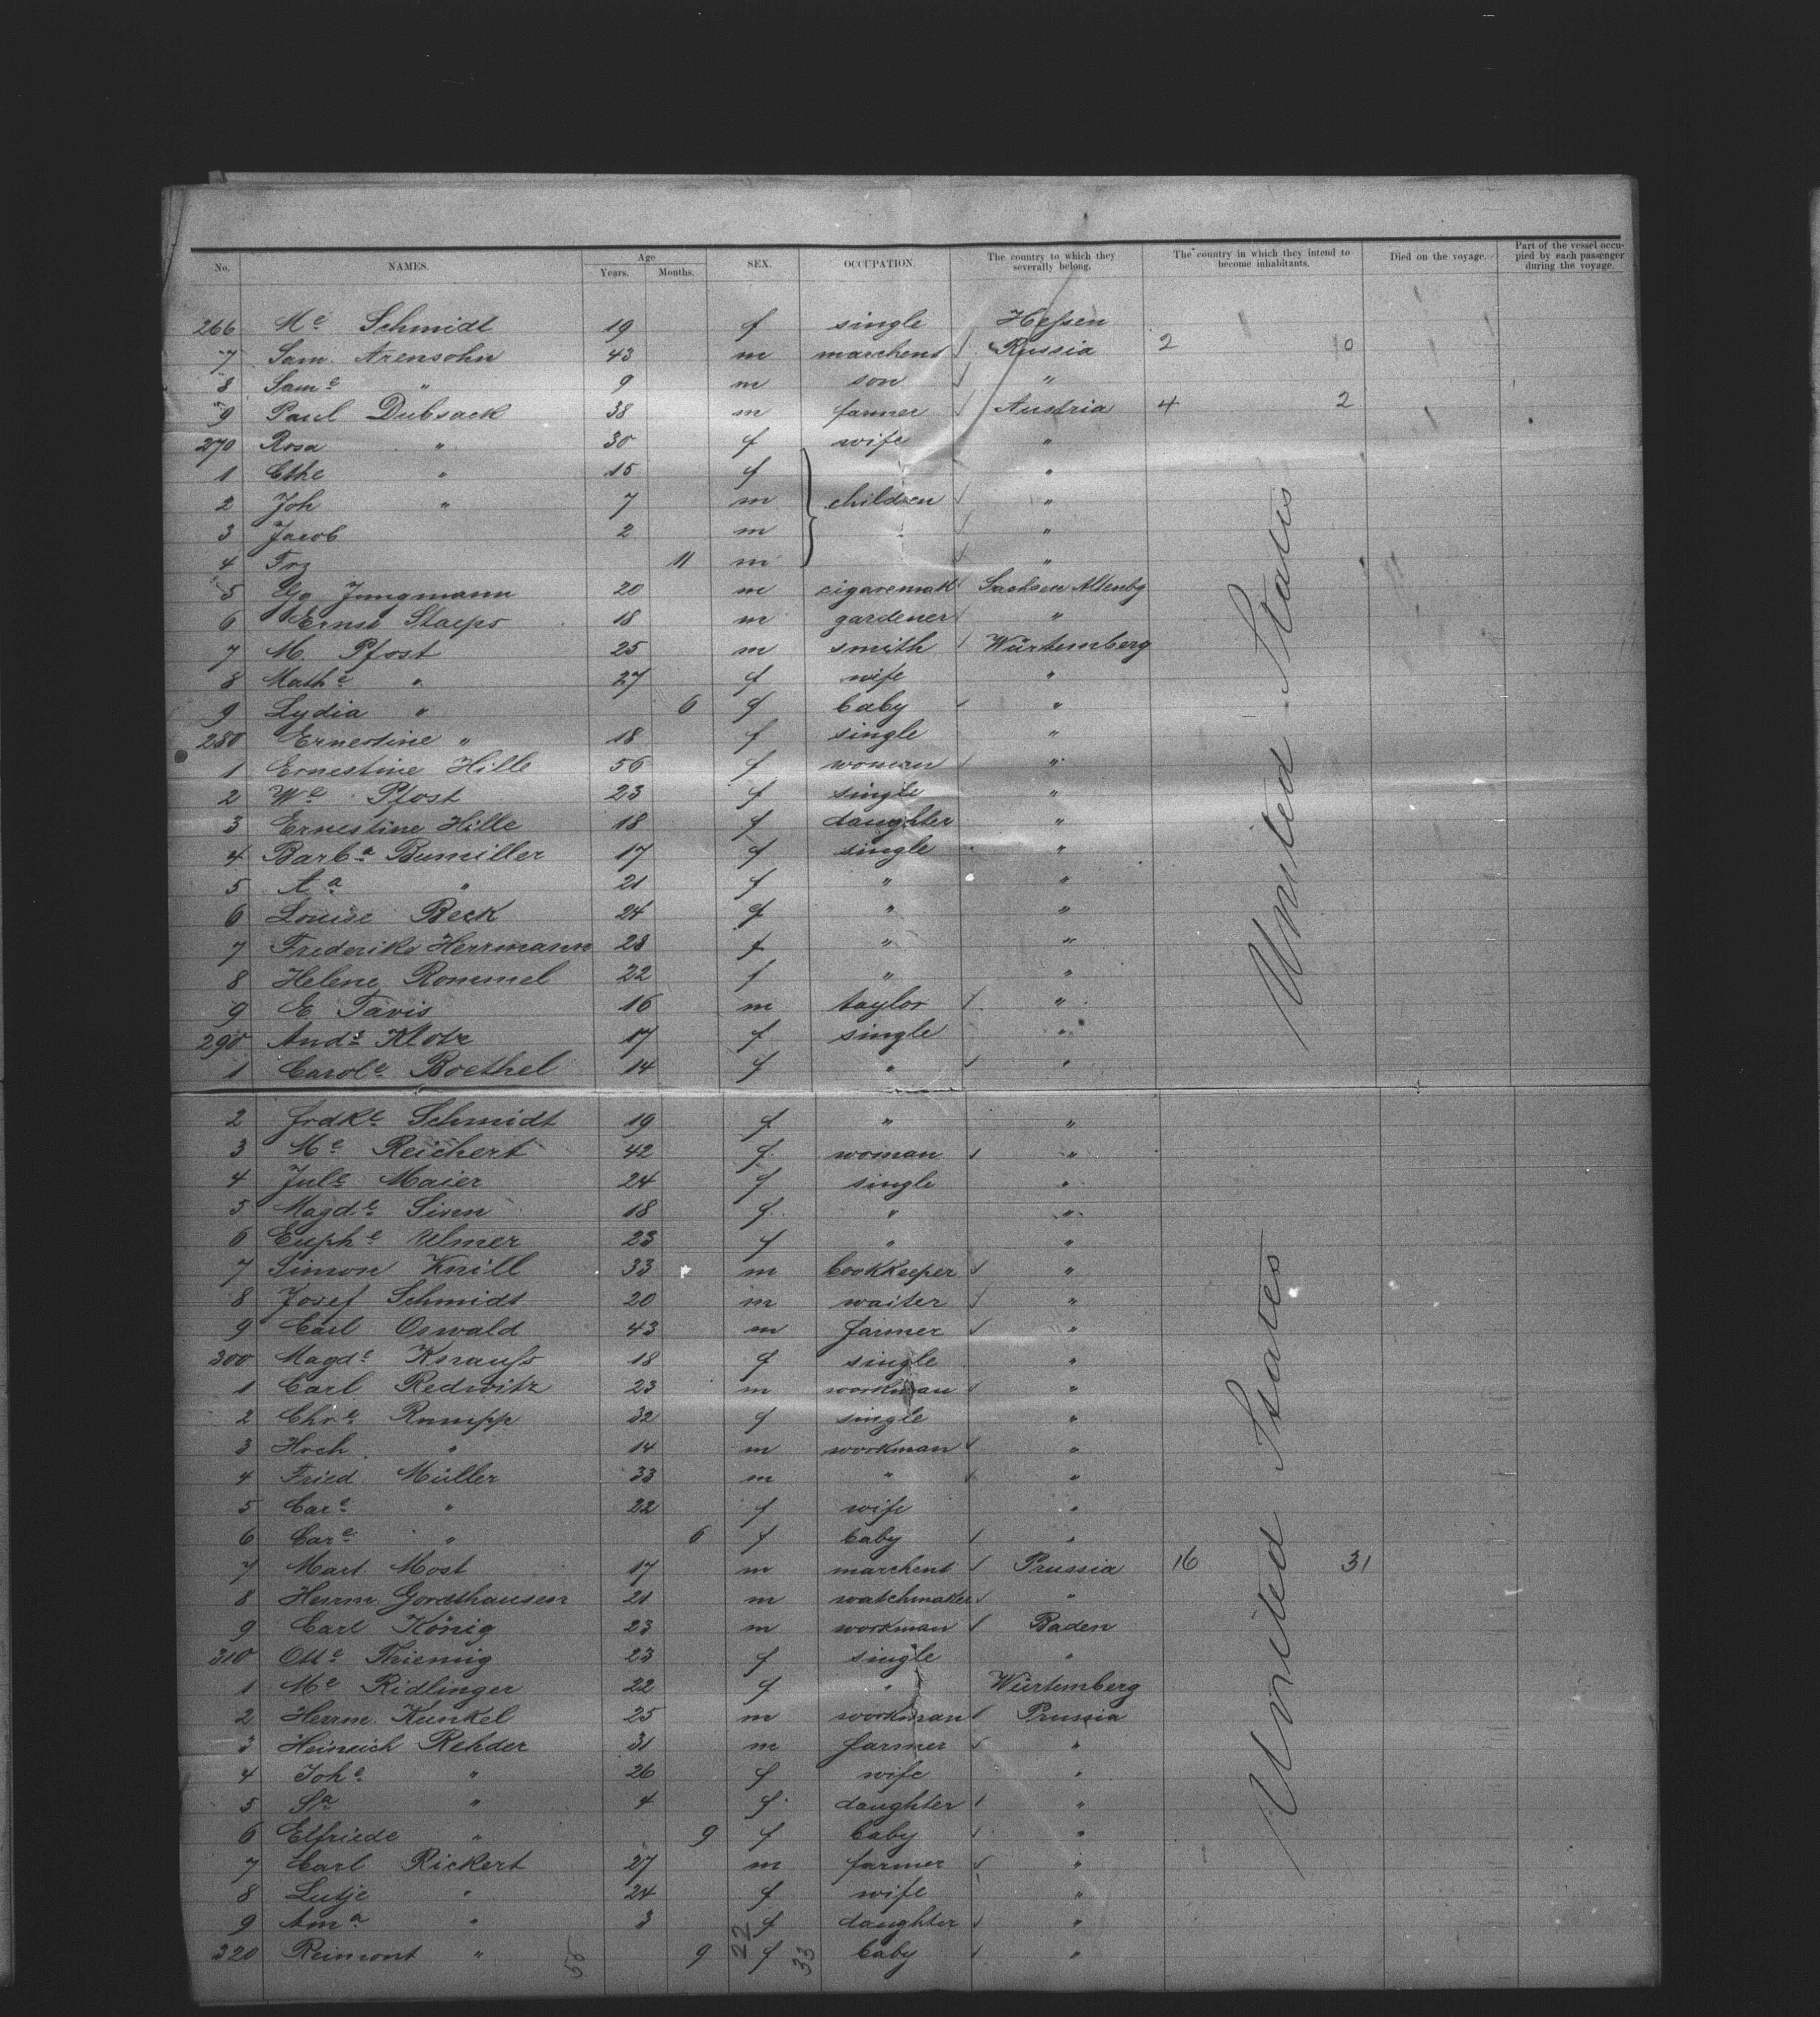 No. NAMES. Age Years. Months. SEX. OCCUPATION. The country to which they severally belong. The country in which they intend to become inhabitants. Died on the voyage. Part of the vessel occupied by each passenger during the voyage.
266 Me Schmidt 19 f single Hessen
7 Sam. Arensohn 43 m marchent Russia 2 0
8 Same " 9 m son "
9 Paul Dubsack 38 m farmer Austria 4 2
270 Rosa " 30 f wife "
1 Ethe " 15 f "
2 Joh " 7 m children "
3 Jacob 2 m "
4 Frz 11 m "
5 Go Jungmann 20 m cigaremak Sachsen Altenbg
6 Ernst Staeps 18 m gardener "
7 M. Pfost 25 m smith Würtemberg
8 Mathe " 27 f wife "
9 Lydia " 6 f baby "
280 Ernestine " 18 f single "
1 Ernestine Hille 56 f woman "
2 We Pfost 23 f single "
3 Ernestine Hille 18 f daughter "
4 Barba Bumiller 17 f single "
5 Aa " 21 f " "
6 Louise Beck 24 f " "
7 Frederike Herrmann 28 f " "
8 Helene Rommel 22 f " "
9 E. Tavis 16 m taylor "
290 Klotz 17 f single "
1 Carole Boethel 14 f " "
2 Frdke Schmidt 19 f " "
3 Me Reichert 42 f woman "
4 Jule Maier 24 f single "
5 Magde 18 f " "
6 Euphe Ulmer 23 f " "
7 Simon Knill 33 m bookkeeper "
8 Josef Schmidt 20 m waiter "
9 Carl Oswald 43 m farmer "
300 Magde Knauss 18 f single "
1 Carl Redwitz 23 m workman "
2 Chre Rumpp 32 f single "
3 Hoch " 14 m workman "
4 Fried. Müller 33 m " "
5 Care " 22 f wife "
6 Care " 6 f baby "
7 Mart. Most 17 m marchent Prussia 16 31
8 Herrm. Gordthausen 21 m watchmaker "
9 Carl König 23 m workman Baden
310 Otte Thiemig 23 f single "
1 Me Ridlinger 22 f " Würtemberg
2 Herrm. Kunkel 25 m workman Prussia
3 Heinrich Rehder 31 m farmer "
4 Johe " 26 f wife "
5 Sa " 4 f daughter "
6 Elfriede " 9 f baby "
7 Carl Rickert 27 m farmer "
8 Lutje " 24 f wife "
9 Ama " 3 f daughter "
320 Reimont " 9 f baby "
22 33
United States
United States